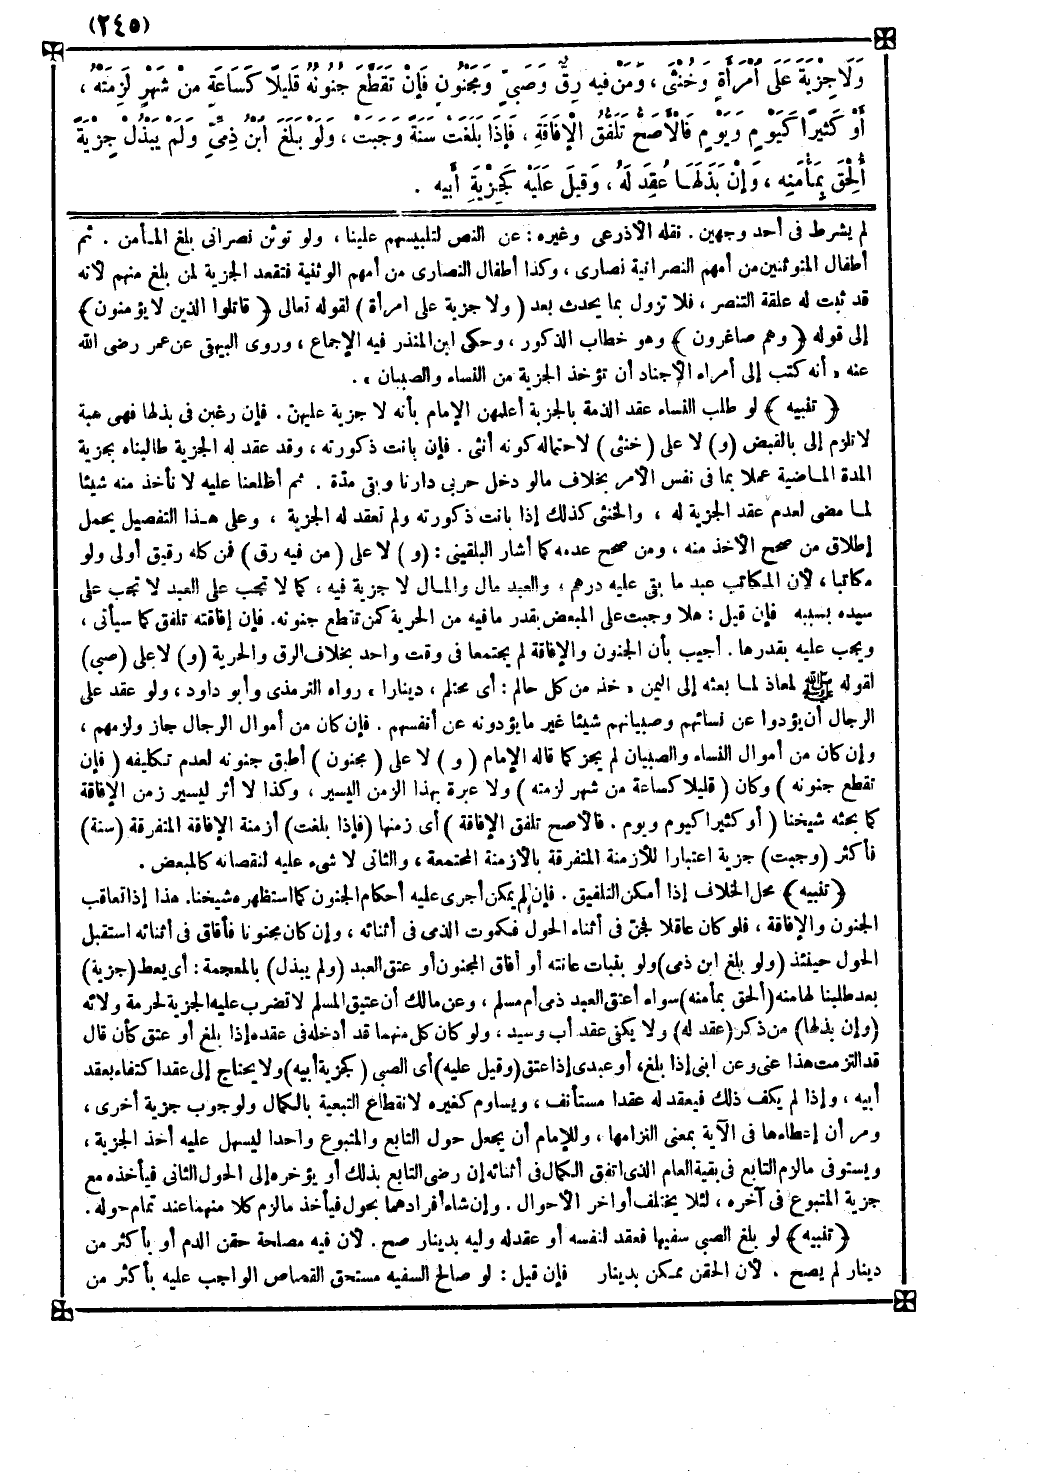 (٢٤٥)
وَلَا جِزْيَةَ عَلَى امْرَأَةٍ وَخُنْثَى ، وَمَنْ فيه رِقٌّ وَصَبِيٍّ وَمَجْنُونٍ فَإِنْ تَقَطَّعَ جُنُونُهُ قَلِيلًا كَسَاعَةٍ مِنْ شَهْرٍ لَزِمَتْهُ ،
أَوْ كَثِيرًا كَيَوْمٍ وَيَوْمٍ فَالْأَصَحُّ تُلَفَّقُ الْإِفَاقَةِ ، فَإِذَا بَلَغَتْ سَنَةً وَجَبَتْ ، وَلَوْ بَلَغَ ابْنُ ذِمِّيٍّ وَلَمْ يَبْذُلْ جِزْيَةً
أُلْحِقَ بِمَأْمَنِهِ ، وَإِنْ بَذَلَهَا عُقِدَ لَهُ ، وَقيلَ عَلَيْهِ كَجِزْيَةِ أَبيهِ .
لم يشرط فى أحد وجهين . نقله الأذرعى وغيره : عن النص لتلبيسهم علينا ، ولو توثن نصرانى بلغ المأمن . ثم
أطفال المتوثنين من أمهم النصرانية نصارى ، وكذا أطفال النصارى من أمهم الوثنية فتقعد الجزية لمن بلغ منهم لأنه
قد ثبت له علقة التنصر ، فلا تزول بما يحدث بعد ( ولا جزية على امرأة ) لقوله تعالى ﴿ قاتلوا الذين لا يؤمنون ﴾
إلى قوله ﴿ وهم صاغرون ﴾ وهو خطاب الذكور ، وحكى ابن المنذر فيه الإجماع ، وروى البيهقى عن عمر رضى الله
عنه « أنه كتب إلى أمراء الأجناد أن تؤخذ الجزية من النساء والصبيان » .
﴿ تنبيه ﴾ لو طلب النساء عقد الذمة بالجزية أعلمهن الإمام بأنه لا جزية عليهن . فإن رغبن فى بذلها فهى هبة
لا تلزم إلى بالقبض (و) لا على (خنثى ) لاحتماله كونه أنثى . فإن بانت ذكورته ، وقد عقد له الجزية طالبناه بجزية
المدة الماضية عملا بما فى نفس الأمر بخلاف مالو دخل حربى دارنا وبقى مدّة . ثم أطلعنا عليه لا نأخذ منه شيئا
لما مضى لعدم عقد الجزية له ، والخنثى كذلك إذا بانت ذكورته ولم تعقد له الجزية ، وعلى هذا التفصيل يحمل
إطلاق من صحح الأخذ منه ، ومن صحح عدمه كما أشار البلقينى : (و ) لا على (من فيه رق ) فمن كله رقيق أولى ولو
مكاتبا ، لأن المكاتب عبد ما بقى عليه درهم ، والعبد مال والمال لا جزية فيه ، كما لا تجب على العبد لا تجب على
سيده بسببه فإن قيل : هلا وجبت على المبعض بقدر مافيه من الحرية كمن تقطع جنونه . فإن إفاقته تلفق كما سيأتى ،
ويجب عليه بقدرها . أجيب بأن الجنون والإفاقة لم يجتمعا فى وقت واحد بخلاف الرق والحرية (و) لا على (صبي)
لقوله ﷺ لمعاذ لما بعثه إلى اليمن « خذ من كل حالم : أى محتلم ، دينارا » رواه الترمذى وأبو داود ، ولو عقد على
الرجال أن يؤدوا عن نسائهم وصبيانهم شيئا غير ما يؤدونه عن أنفسهم . فإن كان من أموال الرجال جاز ولزمهم ،
وإن كان من أموال النساء والصبيان لم يجز كما قاله الإمام ( و ) لا على ( مجنون ) أطبق جنونه لعدم تكليفه ( فإن
تقطع جنونه ) وكان ( قليلا كساعة من شهر لزمته ) ولا عبرة بهذا الزمن اليسير ، وكذا لا أثر ليسير زمن الإفاقة
كما بحثه شيخنا ( أو كثيرا كيوم ويوم . فالأصح تلفق الإفاقة ) أى زمنها (فإذا بلغت) أزمنة الإفاقة المتفرقة (سنة)
فأكثر (وجبت) جزية اعتبارا للأزمنة المتفرقة بالأزمنة المجتمعة ، والثانى لا شىء عليه لنقصانه كالمبعض .
﴿تنبيه﴾ محل الخلاف إذا أمكن التلفيق . فإن لم يمكن أجرى عليه أحكام الجنون كما استظهره شيخنا. هذا إذا تعاقب
الجنون والإفاقة ، فلو كان عاقلا فجنّ فى أثناء الحول فكموت الذمى فى أثنائه ، وإن كان مجنونا فأفاق فى أثنائه استقبل
الحول حينئذ (ولو بلغ ابن ذمى) ولو بنبات عانته أو أفاق المجنون أو عتق العبد (ولم يبذل ) بالمعجمة : أى يعط (جزية)
بعد طلبنا لها منه (ألحق بمأمنه) سواء أعتق العبد ذمى أم مسلم ، وعن مالك أن عتيق المسلم لا تضرب عليه الجزية لحرمة ولائه
(وإن بذلها) من ذكر (عقد له) ولا يكفى عقد أب وسيد ، ولو كان كل منهما قد أدخله فى عقده إذا بلغ أو عتق كأن قال
قد التزمت هذا عنى وعن ابنى إذا بلغ، أو عبدى إذا عتق (وقيل عليه) أى الصبى (كجزية أبيه) ولا يحتاج إلى عقد اكتفاء بعقد
أبيه ، وإذا لم يكف ذلك فيعقد له عقدا مستأنف ، ويساوم كغيره لانقطاع التبعية بالكمال ولوجوب جزية أخرى ،
ومر أن إعطاءها فى الآية بمعنى التزامها ، وللإمام أن يجعل حول التابع والمتبوع واحدا ليسهل عليه أخذ الجزية ،
ويستوفى مالزم التابع فى بقية العام الذى اتفق الكمال فى أثنائه إن رضى التابع بذلك أو يؤخره إلى الحول الثانى فيأخذه مع
جزية المتبوع فى آخره ، لئلا يختلف أواخر الأحوال . وإن شاء أفرادهما بحول فيأخذ مالزم كلا منهما عند تمام حوله .
﴿تنبيه﴾ لو بلغ الصبى سفيها فعقد لنفسه أو عقد له وليه بدينار صح . لأن فيه مصلحة حقن الدم أو بأكثر من
دينار لم يصح . لأن الحقن ممكن بدينار فإن قيل : لو صالح السفيه مستحق القصاص الواجب عليه بأكثر من